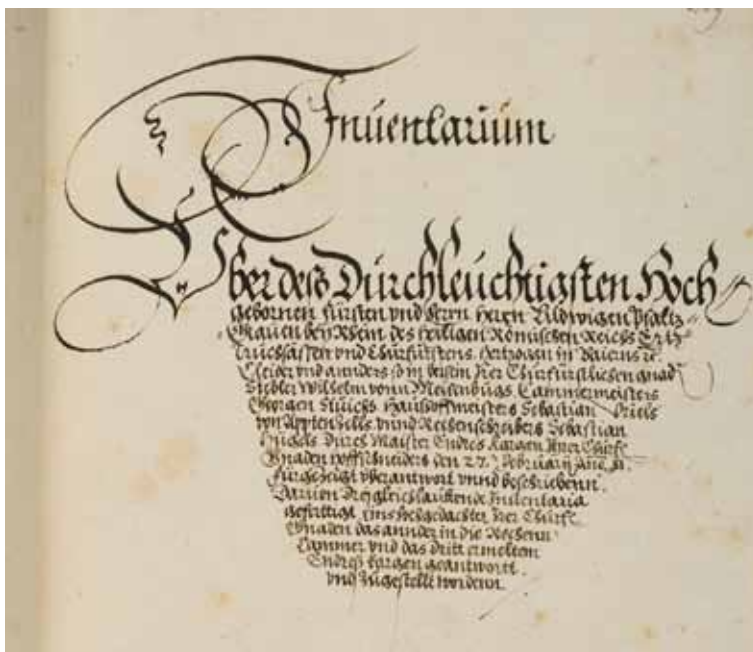 Inuentarium
Vber dess Durchleuchtigsten Hoch
gebornen fürsten vnd Herrn Herrn Ludwigen Pfaltz-
Grauen bey Rhein des heiligen Römischen Reichs Ertz
Truchsässen vnd Churfürstens, Hertzogen in Baierns ꝛc.
Cleider vnd annders so in beisein Irer Churfürstlichen gnad
Wilhelm vonn Meisenbugs, Cammermeisters
Georgen Hausshoffmeisters Sebastian
von Appten Zells vnnd Rechenschreibers Sebastian
Hügels durch Maister Endres Kargen Irer Churf.
Gnaden hoffschneiders den 27. february
fürgezeigt vberantwort vnnd beschriebenn.
Daruon drey gleichlauttende Inuentaria
gefertigt eins hochgedachter Irer Churf.
Gnaden das annder in die Rechenn
Cammer vnd das dritt ermeltem
Endress Kargen geantwort
vnd zugestelt worden